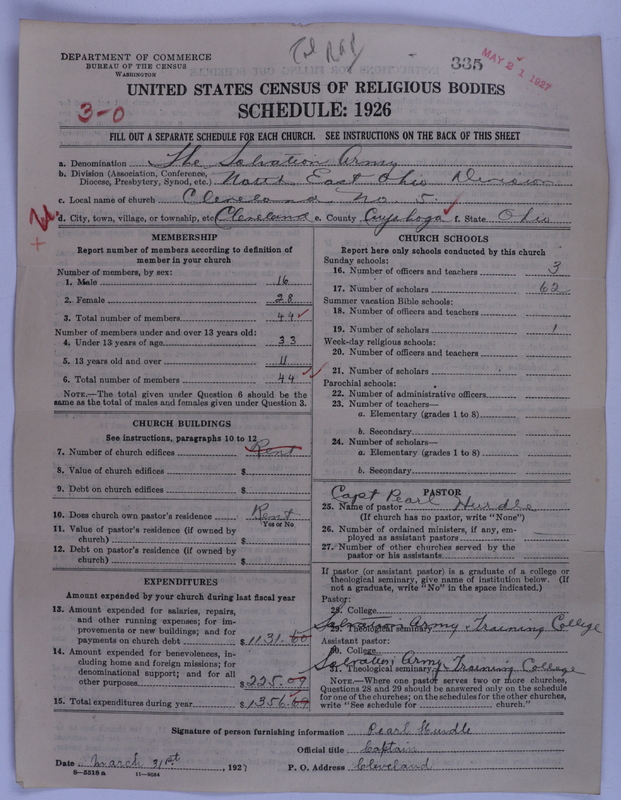 335
MAY 21 1927
DEPARTMENT OF COMMERCE
BUREAU OF THE CENSUS
WASHINGTON
UNITED STATES CENSUS OF RELIGIOUS BODIES
SCHEDULE: 1926
3-0
FILL OUT A SEPARATE SCHEDULE FOR EACH CHURCH. SEE INSTRUCTIONS ON THE BACK OF THIS SHEET
a. Denomination The Salvation Army
b. Division (Association, Conference, Diocese, Presbytery, Synod, etc.) North East Ohio Division
c. Local name of church Cleveland No. 5.
d. City, town, village, or township, etc. Cleveland e. County Cuyahoga f. State Ohio
MEMBERSHIP
Report number of members according to definition of
member in your church
Number of members, by sex:
1. Male 16
2. Female 28
3. Total number of members 44
Number of members under and over 13 years old:
4. Under 13 years of age 33
5. 13 years old and over 11
6. Total number of members 44
NOTE.—The total given under Question 6 should be the
same as the total of males and females given under Question 3.
CHURCH BUILDINGS
See instructions, paragraphs 10 to 12
7. Number of church edifices Rent
8. Value of church edifices $
9. Debt on church edifices $
10. Does church own pastor's residence Rent
Yes or No
11. Value of pastor's residence (if owned by
church) $
12. Debt on pastor's residence (if owned by
church) $
EXPENDITURES
Amount expended by your church during last fiscal year
13. Amount expended for salaries, repairs,
and other running expenses; for im-
provements or new buildings; and for
payments on church debt $ 1131.60
14. Amount expended for benevolences, in-
cluding home and foreign missions; for
denominational support; and for all
other purposes $ 225.09
15. Total expenditures during year $ 1356.69
CHURCH SCHOOLS
Report here only schools conducted by this church
Sunday schools:
16. Number of officers and teachers 3
17. Number of scholars 62
Summer vacation Bible schools:
18. Number of officers and teachers
19. Number of scholars 1
Week-day religious schools:
20. Number of officers and teachers
21. Number of scholars
Parochial schools:
22. Number of administrative officers
23. Number of teachers—
a. Elementary (grades 1 to 8)
b. Secondary
24. Number of scholars—
a. Elementary (grades 1 to 8)
b. Secondary
PASTOR
25. Name of pastor Capt Pearl Hurdle
(If church has no pastor, write "None")
26. Number of ordained ministers, if any, em-
ployed as assistant pastors
27. Number of other churches served by the
pastor or his assistants
If pastor (or assistant pastor) is a graduate of a college or
theological seminary, give name of institution below. (If
not a graduate, write "No" in the space indicated.)
Pastor:
28. College
29. Theological seminary Salvation Army Training College
Assistant pastor:
30. College
31. Theological seminary Salvation Army Training College
NOTE.—Where one pastor serves two or more churches,
Questions 28 and 29 should be answered only on the schedule
for one of the churches; on the schedules for the other churches,
write "See schedule for church."
Signature of person furnishing information Pearl Hurdle
Official title Captain
Date March 31st, 1927 P. O. Address Cleveland
8-5518a 11-9064